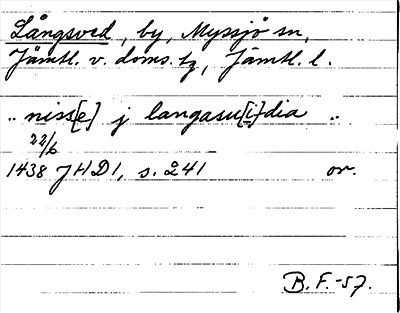 Långsved, by, Myssjö sn,
Jämtl. v. doms. tg, Jämtl. l.
.. niss[e] j langasu[i]dia ..
22/6
1438 JHD1, s. 241 or.
B.F.-57.